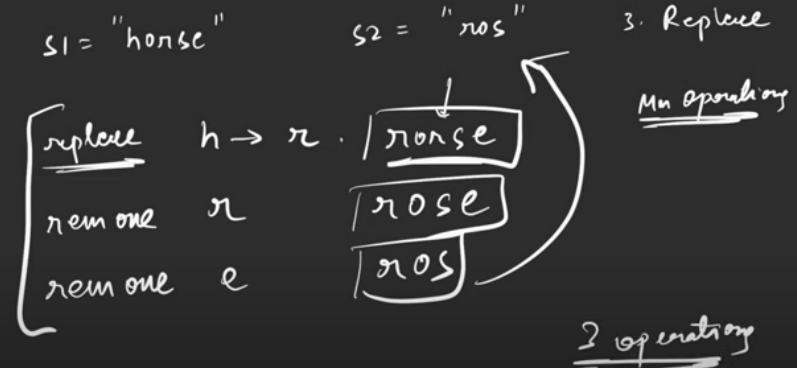 S1 = "horse"
S2 = "ros"
3. Replace
Min operations
replace h → r. rorse
remove r rose
remove e ros
3 operations